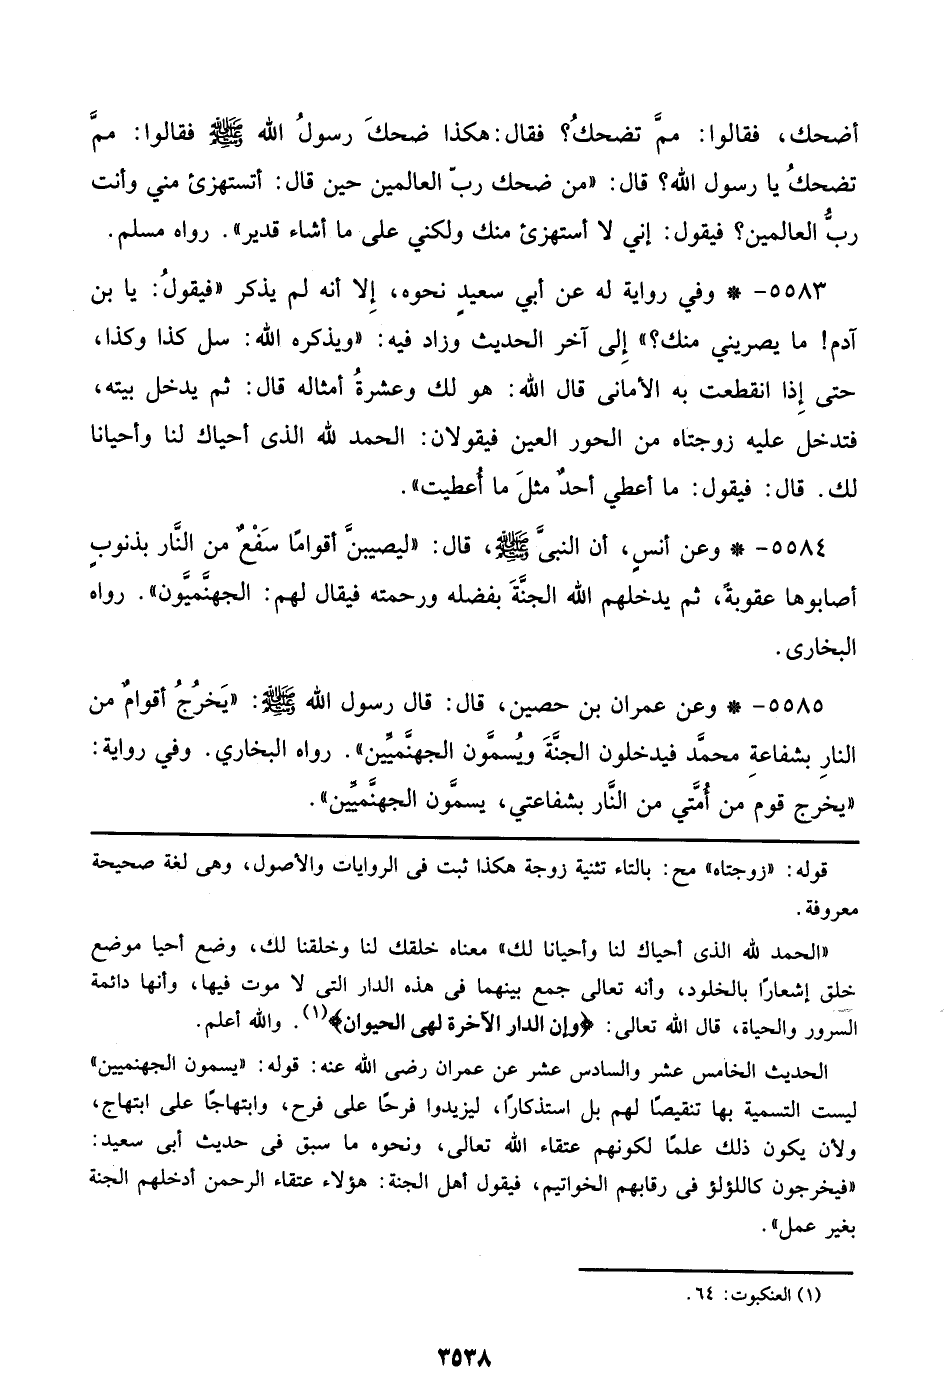 أضحك، فقالوا: ممَّ تضحكُ؟ فقال: هكذا ضحكَ رسولُ الله ﷺ فقالوا: ممَّ
تضحكُ يا رسول الله؟ قال: «من ضحك ربّ العالمين حين قال: أتستهزئ مني وأنت
ربُّ العالمين؟ فيقول: إني لا أستهزئ منك ولكني على ما أشاء قدير». رواه مسلم.
٥٥٨٣- * وفي رواية له عن أبي سعيدٍ نحوه، إلا أنه لم يذكر «فيقولُ: يا بن
آدم! ما يصريني منك؟» إلى آخر الحديث وزاد فيه: «ويذكره الله: سل كذا وكذا،
حتى إذا انقطعت به الأمانى قال الله: هو لك وعشرةُ أمثاله قال: ثم يدخل بيته،
فتدخل عليه زوجتاه من الحور العين فيقولان: الحمد لله الذى أحياك لنا وأحيانا
لك. قال: فيقول: ما أعطي أحدٌ مثلَ ما أُعطيت».
٥٥٨٤- * وعن أنسٍ، أن النبىَّ ﷺ، قال: «ليصيبنَّ أقوامًا سَفْعٌ من النَّار بذنوبٍ
أصابوها عقوبةً، ثم يدخلهم الله الجنَّةَ بفضله ورحمته فيقال لهم: الجهنَّميَّون». رواه
البخارى.
٥٥٨٥- * وعن عمران بن حصين، قال: قال رسول الله ﷺ: «يَخرُجُ أقوامٌ من
النارِ بشفاعةِ محمَّد فيدخلون الجنَّةَ ويُسمَّون الجهنَّميِّين». رواه البخاري. وفي رواية:
«يخرج قوم من أُمَّتي من النَّار بشفاعتي، يسمَّون الجهنَّميِّين».
قوله: «زوجتاه» مح: بالتاء تثنية زوجة هكذا ثبت فى الروايات والأصول، وهى لغة صحيحة
معروفة.
«الحمد لله الذى أحياك لنا وأحيانا لك» معناه خلقك لنا وخلقنا لك، وضع أحيا موضع
خلق إشعارًا بالخلود، وأنه تعالى جمع بينهما فى هذه الدار التى لا موت فيها، وأنها دائمة
السرور والحياة، قال الله تعالى: ﴿وإن الدار الآخرة لهى الحيوان﴾(١). والله أعلم.
الحديث الخامس عشر والسادس عشر عن عمران رضى الله عنه: قوله: «يسمون الجهنميين»
ليست التسمية بها تنقيصًا لهم بل استذكارًا، ليزيدوا فرحًا على فرح، وابتهاجًا على ابتهاج،
ولأن يكون ذلك علمًا لكونهم عتقاء الله تعالى، ونحوه ما سبق فى حديث أبى سعيد:
«فيخرجون كاللؤلؤ فى رقابهم الخواتيم، فيقول أهل الجنة: هؤلاء عتقاء الرحمن أدخلهم الجنة
بغير عمل».
(١) العنكبوت: ٦٤.
٣٥٣٨